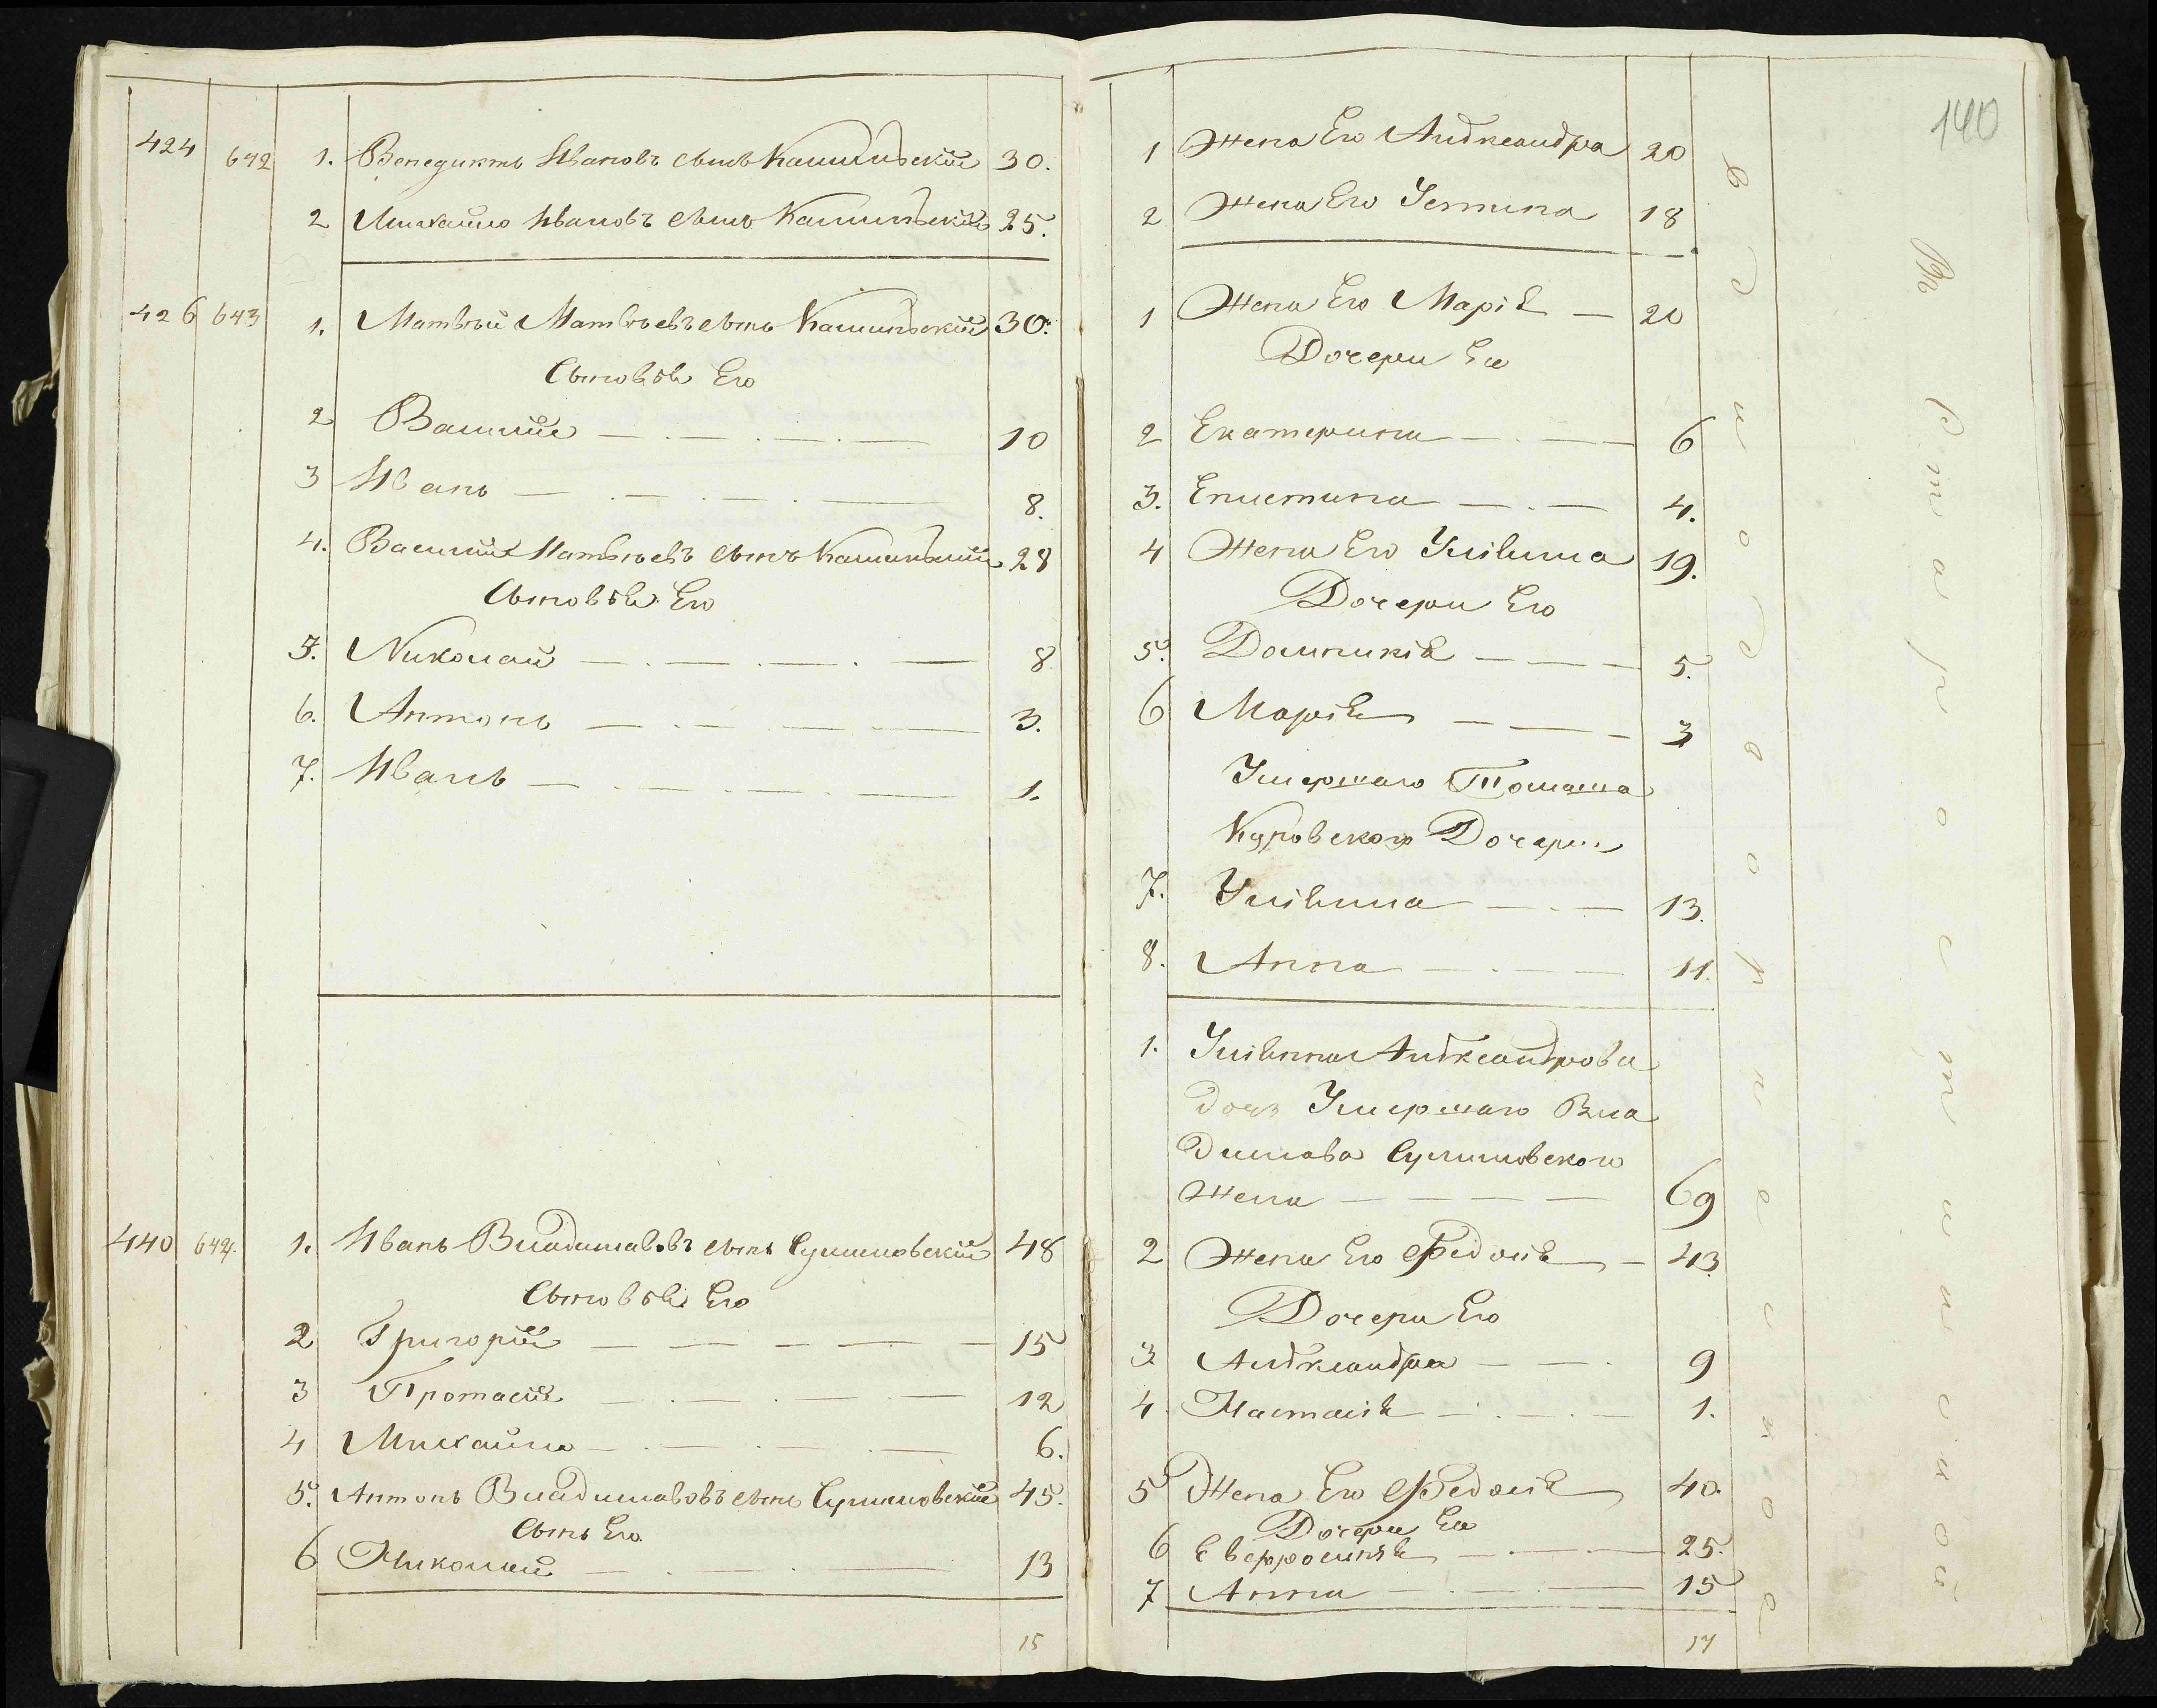 424 642 1. Венедиктъ Ивановъ сынъ Каминьскій 30.
2 Михайло Ивановъ сынъ Каминьскій 25.
426 643 1. Матвѣй Матвѣевъ сынъ Каминьскій 30.
Сыновья Его
2 Василій 10
3 Иванъ 8.
4. Василій Матвѣевъ сынъ Каминьскій 28
Сыновья Его
5. Николай 8.
6. Антонъ 3.
7. Иванъ 1.
440 644. 1. Иванъ Владиславовъ сынъ Сулимовскій 48
Сыновья Его
2 Григорій 15
3 Протасій 12
4 Михайло 6.
5. Антонъ Владиславовъ сынъ Сулимовскій 45.
Сынъ Его
6 Николай 13
15
140
1 Жена Его Александра 20
2 Жена Его Устина 18
1 Жена Его Марія 20
Дочери Ея
2 Екатерина 6
3. Епистина 4.
4 Жена Его Уліяна 19.
Дочери Его
5. Домникія 5.
6 Марія 3
Умершаго Томаша
Куровского Дочери
7. Уліяна 13.
8. Анна 11.
1. Уліянна Александрова
дочь Умершаго Вла
дислава Сулимовского
Жена 69
2 Жена Его Федосія 43.
Дочери Его
3 Александра 9
4 Настасія 1.
5 Жена Его Федосія 40.
Дочери Ея
6 Евфросинія 25.
7 Анна 15
17
Въ Старостинской